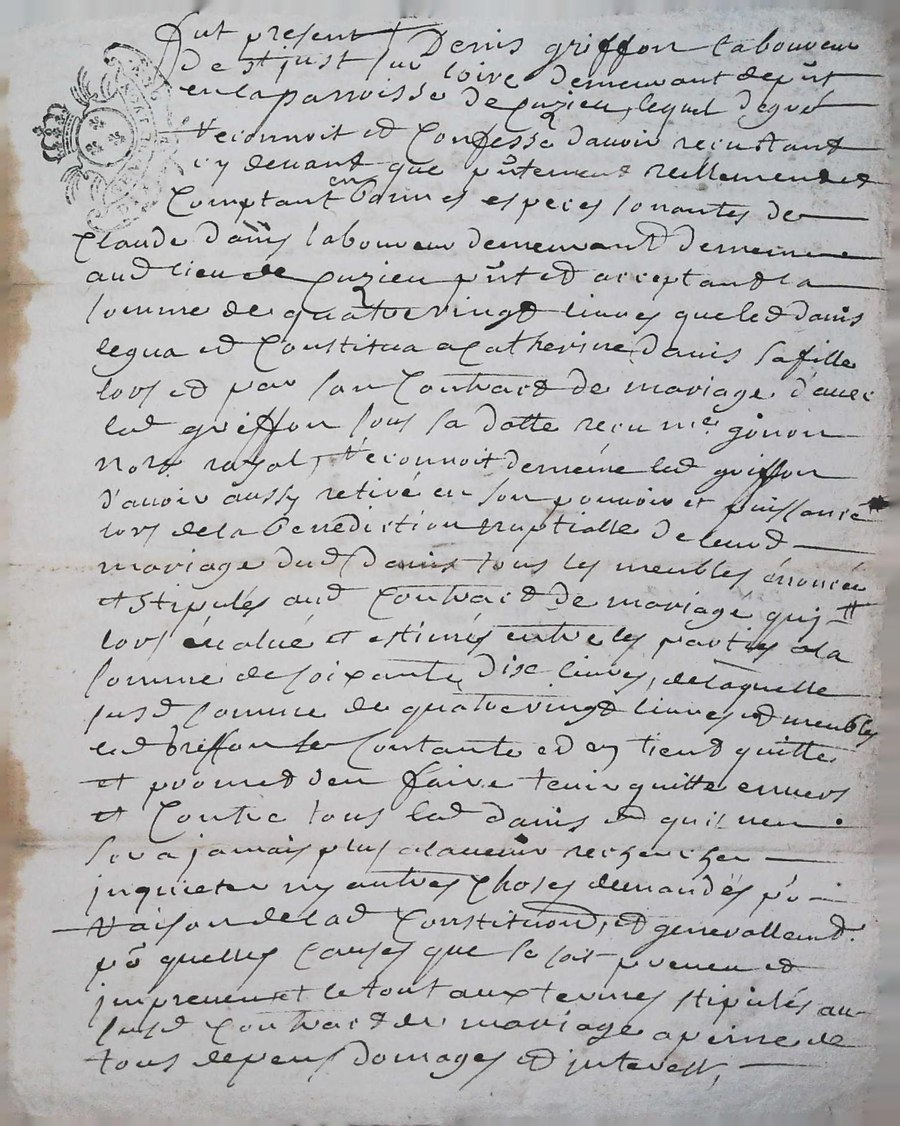 fut present Denis griffon laboureur
de st just sur loire demeurant de pnt
en la parroisse de Cuzieu, lequel de gré
reconnoit et Confesse d'avoir reçu tant
cy devant que pntement reellement et
Comptant en bonnes especes sonantes de
Claude danis laboureur demeurant de meme
aud lieu de Cuzieu pnt et acceptant la
somme de quatrevingt livres que led danis
legua et Constitua a Catherine danis sa fille
lors et par son Contract de mariage d'avec
led griffon sous sa datte reçu me gonon
nore royal, reconnoit de méme led griffon
d'avoir aussy retiré en son pouvoir et puissance
lors de la benediction nuptialle de leurd
mariage dud danis tous les meubles énoncée
et stipulés aud Contract de mariage qui
lors évalué et estimés entre les parties a la
somme de soixante, dise livres, de laquelle
susd somme de quatrevingt livres et meubles
led Griffon se Contante et en tient quitte
et promet d'en faire tenir quitte envers
et Contre tous led danis et qu'il n'en
sera jamais plus a l'avenir rechercher
inquieter ny autres Choses demandés po
raison de lad Constituon, et generallemt
po quelles Causes que se soit preveu et
impreveu et le tout aux termes stipulés au
susd Contract de mariage a peine de
tous depens domages et interest,